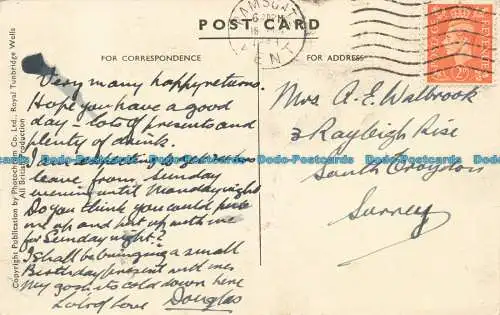 POST CARD
FOR CORRESPONDENCE
FOR ADDRESS
RAMSGATE
KENT
Copyright Publication by Photochrom Co. Ltd., Royal Tunbridge Wells
All British Production
Very many happy returns.
Hope you have a good
day – lots of presents and
plenty of drink.
I am expecting to get
leave from Sunday
evening until Monday night
Do you think you could
me up and put up with me
for Sunday night?
I shall be bringing a small
Birthday present with me
My gosh its cold down here
Lots of Love Douglas
Mrs A. E. Walbrook
3 Rayleigh Rise
South Croydon
Surrey
Dodo-Postcards Dodo-Postcards Dodo-Postcards Dodo-Postcards